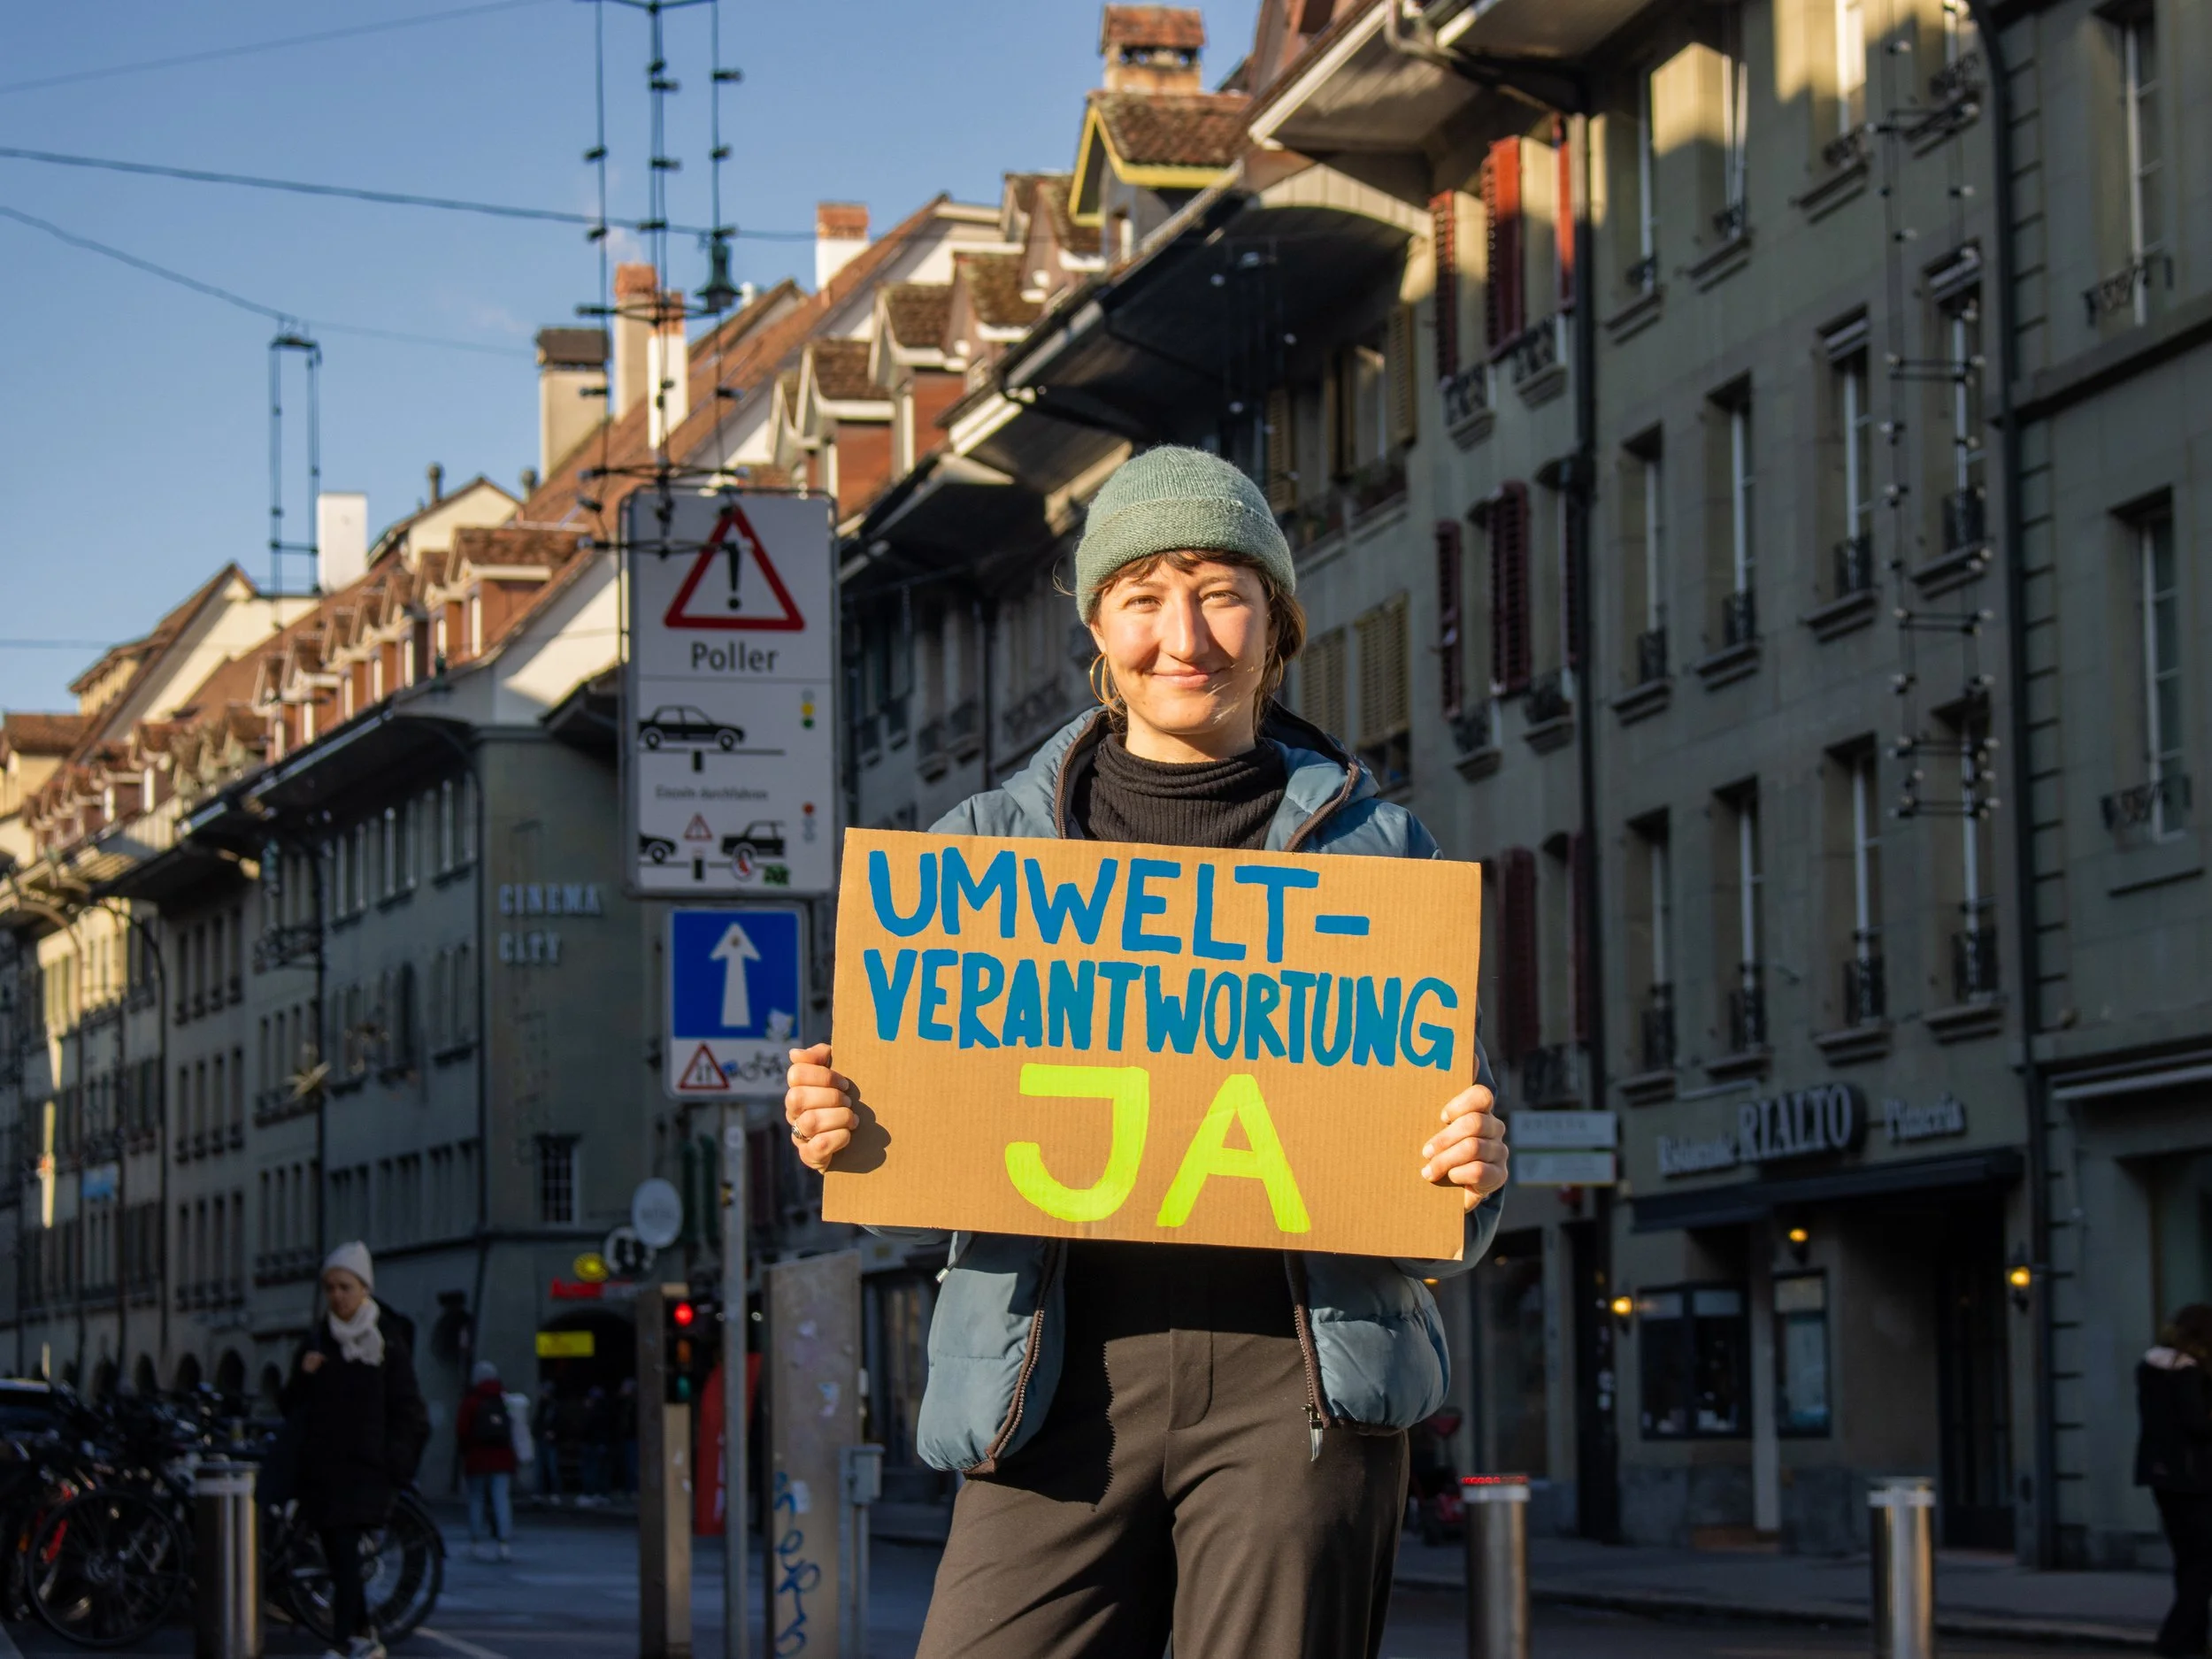 Poller
Einzeln durchfahren
CINEMA
CITY
UMWELT-
VERANTWORTUNG
JA
Ristorante RIALTO Pizzeria